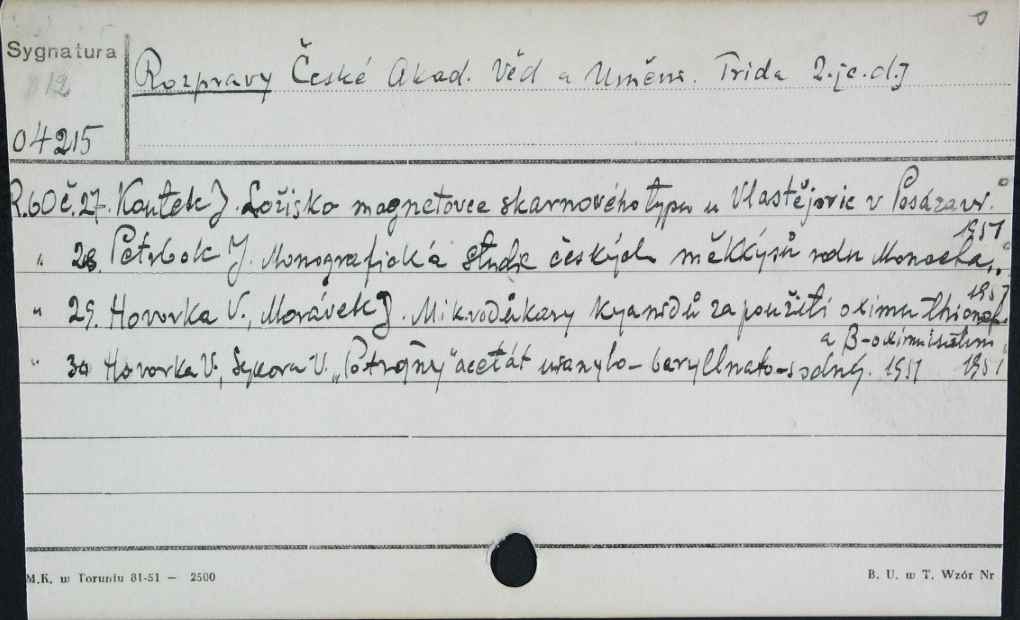 Sygnatura
812
04215
Rozpravy České Akad. Věd a Uměni. Trida 2. [c.d.]
R.60 č.27. Koutek J. Ložisko magnetovce skarnového typu u Vlastějovic v Posázaví.
1951
" 28. Petrbok J. Monografická studje českých měkkýšů rodu Monacha.
" 29. Hovorka V., Morávek J. Mikrodůkazy kyanidů za použití oximu thionaf.
1951
a β-oximisatinu
" 30 Hovorka V., Sykora V. „Potrojný" acetát uranylo-beryllnato-sodný. 1951
1951
M.K. w Toruniu 81-51 — 2500
B. U. w T. Wzór Nr